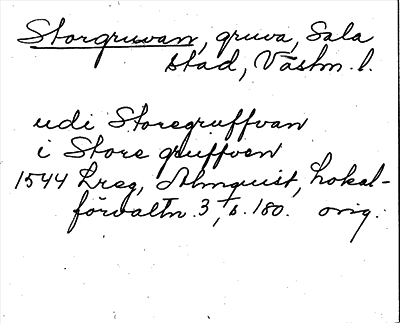 Storgruvan, gruva, Sala
stad, Västm. l.
udi Storegruffvan
i Store gruffven
1544 Lreg, Almquist, Lokal-
förvaltn. 3, s. 180. orig.